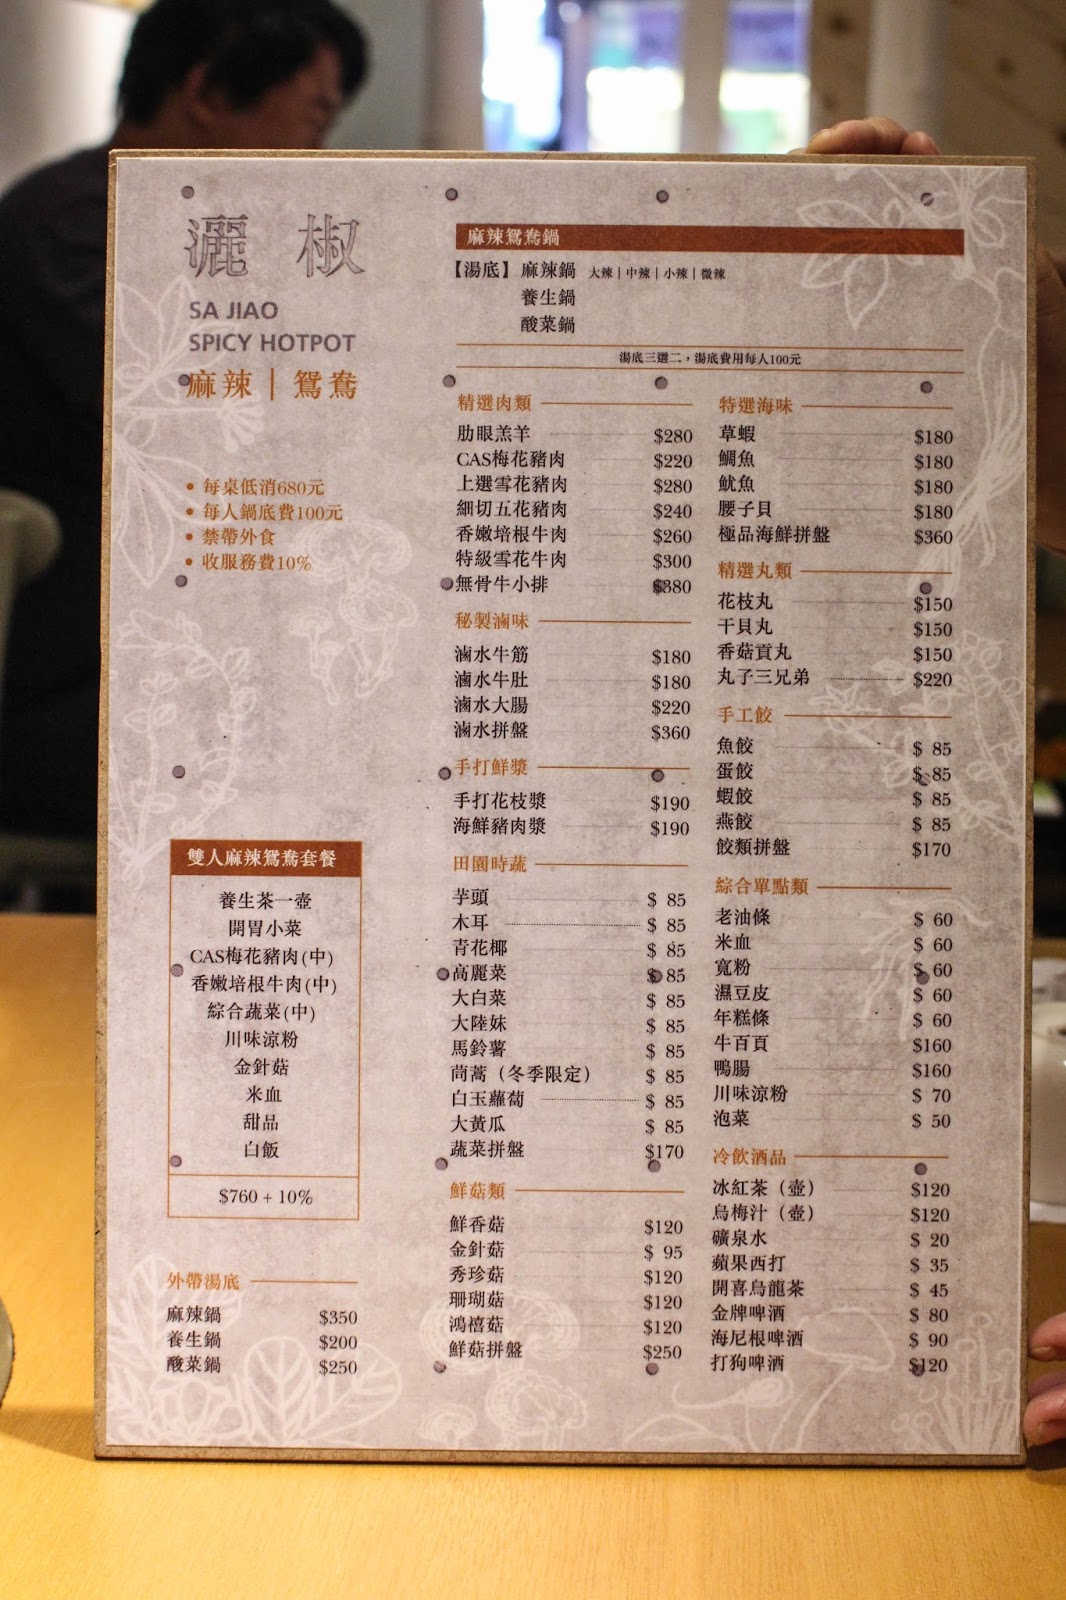 灑椒
SA JIAO
SPICY HOTPOT
麻辣|鴛鴦
• 每桌低消680元
• 每人鍋底費100元
• 禁帶外食
• 收服務費10%
雙人麻辣鴛鴦套餐
養生茶一壺
開胃小菜
CAS梅花豬肉(中)
香嫩培根牛肉(中)
綜合蔬菜(中)
川味涼粉
金針菇
米血
甜品
白飯
$760 + 10%
外帶湯底
麻辣鍋 $350
養生鍋 $200
酸菜鍋 $250
麻辣鴛鴦鍋
【湯底】麻辣鍋 大辣|中辣|小辣|微辣
養生鍋
酸菜鍋
湯底三選二，湯底費用每人100元
精選肉類
肋眼羔羊 $280
CAS梅花豬肉 $220
上選雪花豬肉 $280
細切五花豬肉 $240
香嫩培根牛肉 $260
特級雪花牛肉 $300
無骨牛小排 $380
秘製滷味
滷水牛筋 $180
滷水牛肚 $180
滷水大腸 $220
滷水拼盤 $360
手打鮮漿
手打花枝漿 $190
海鮮豬肉漿 $190
田園時蔬
芋頭 $ 85
木耳 $ 85
青花椰 $ 85
高麗菜 $ 85
大白菜 $ 85
大陸妹 $ 85
馬鈴薯 $ 85
茼蒿（冬季限定） $ 85
白玉蘿蔔 $ 85
大黃瓜 $ 85
蔬菜拼盤 $170
鮮菇類
鮮香菇 $120
金針菇 $ 95
秀珍菇 $120
珊瑚菇 $120
鴻禧菇 $120
鮮菇拼盤 $250
特選海味
草蝦 $180
鯛魚 $180
魷魚 $180
腰子貝 $180
極品海鮮拼盤 $360
精選丸類
花枝丸 $150
干貝丸 $150
香菇貢丸 $150
丸子三兄弟 $220
手工餃
魚餃 $ 85
蛋餃 $ 85
蝦餃 $ 85
燕餃 $ 85
餃類拼盤 $170
綜合單點類
老油條 $ 60
米血 $ 60
寬粉 $ 60
濕豆皮 $ 60
年糕條 $ 60
牛百頁 $160
鴨腸 $160
川味涼粉 $ 70
泡菜 $ 50
冷飲酒品
冰紅茶（壺） $120
烏梅汁（壺） $120
礦泉水 $ 20
蘋果西打 $ 35
開喜烏龍茶 $ 45
金牌啤酒 $ 80
海尼根啤酒 $ 90
打狗啤酒 $120